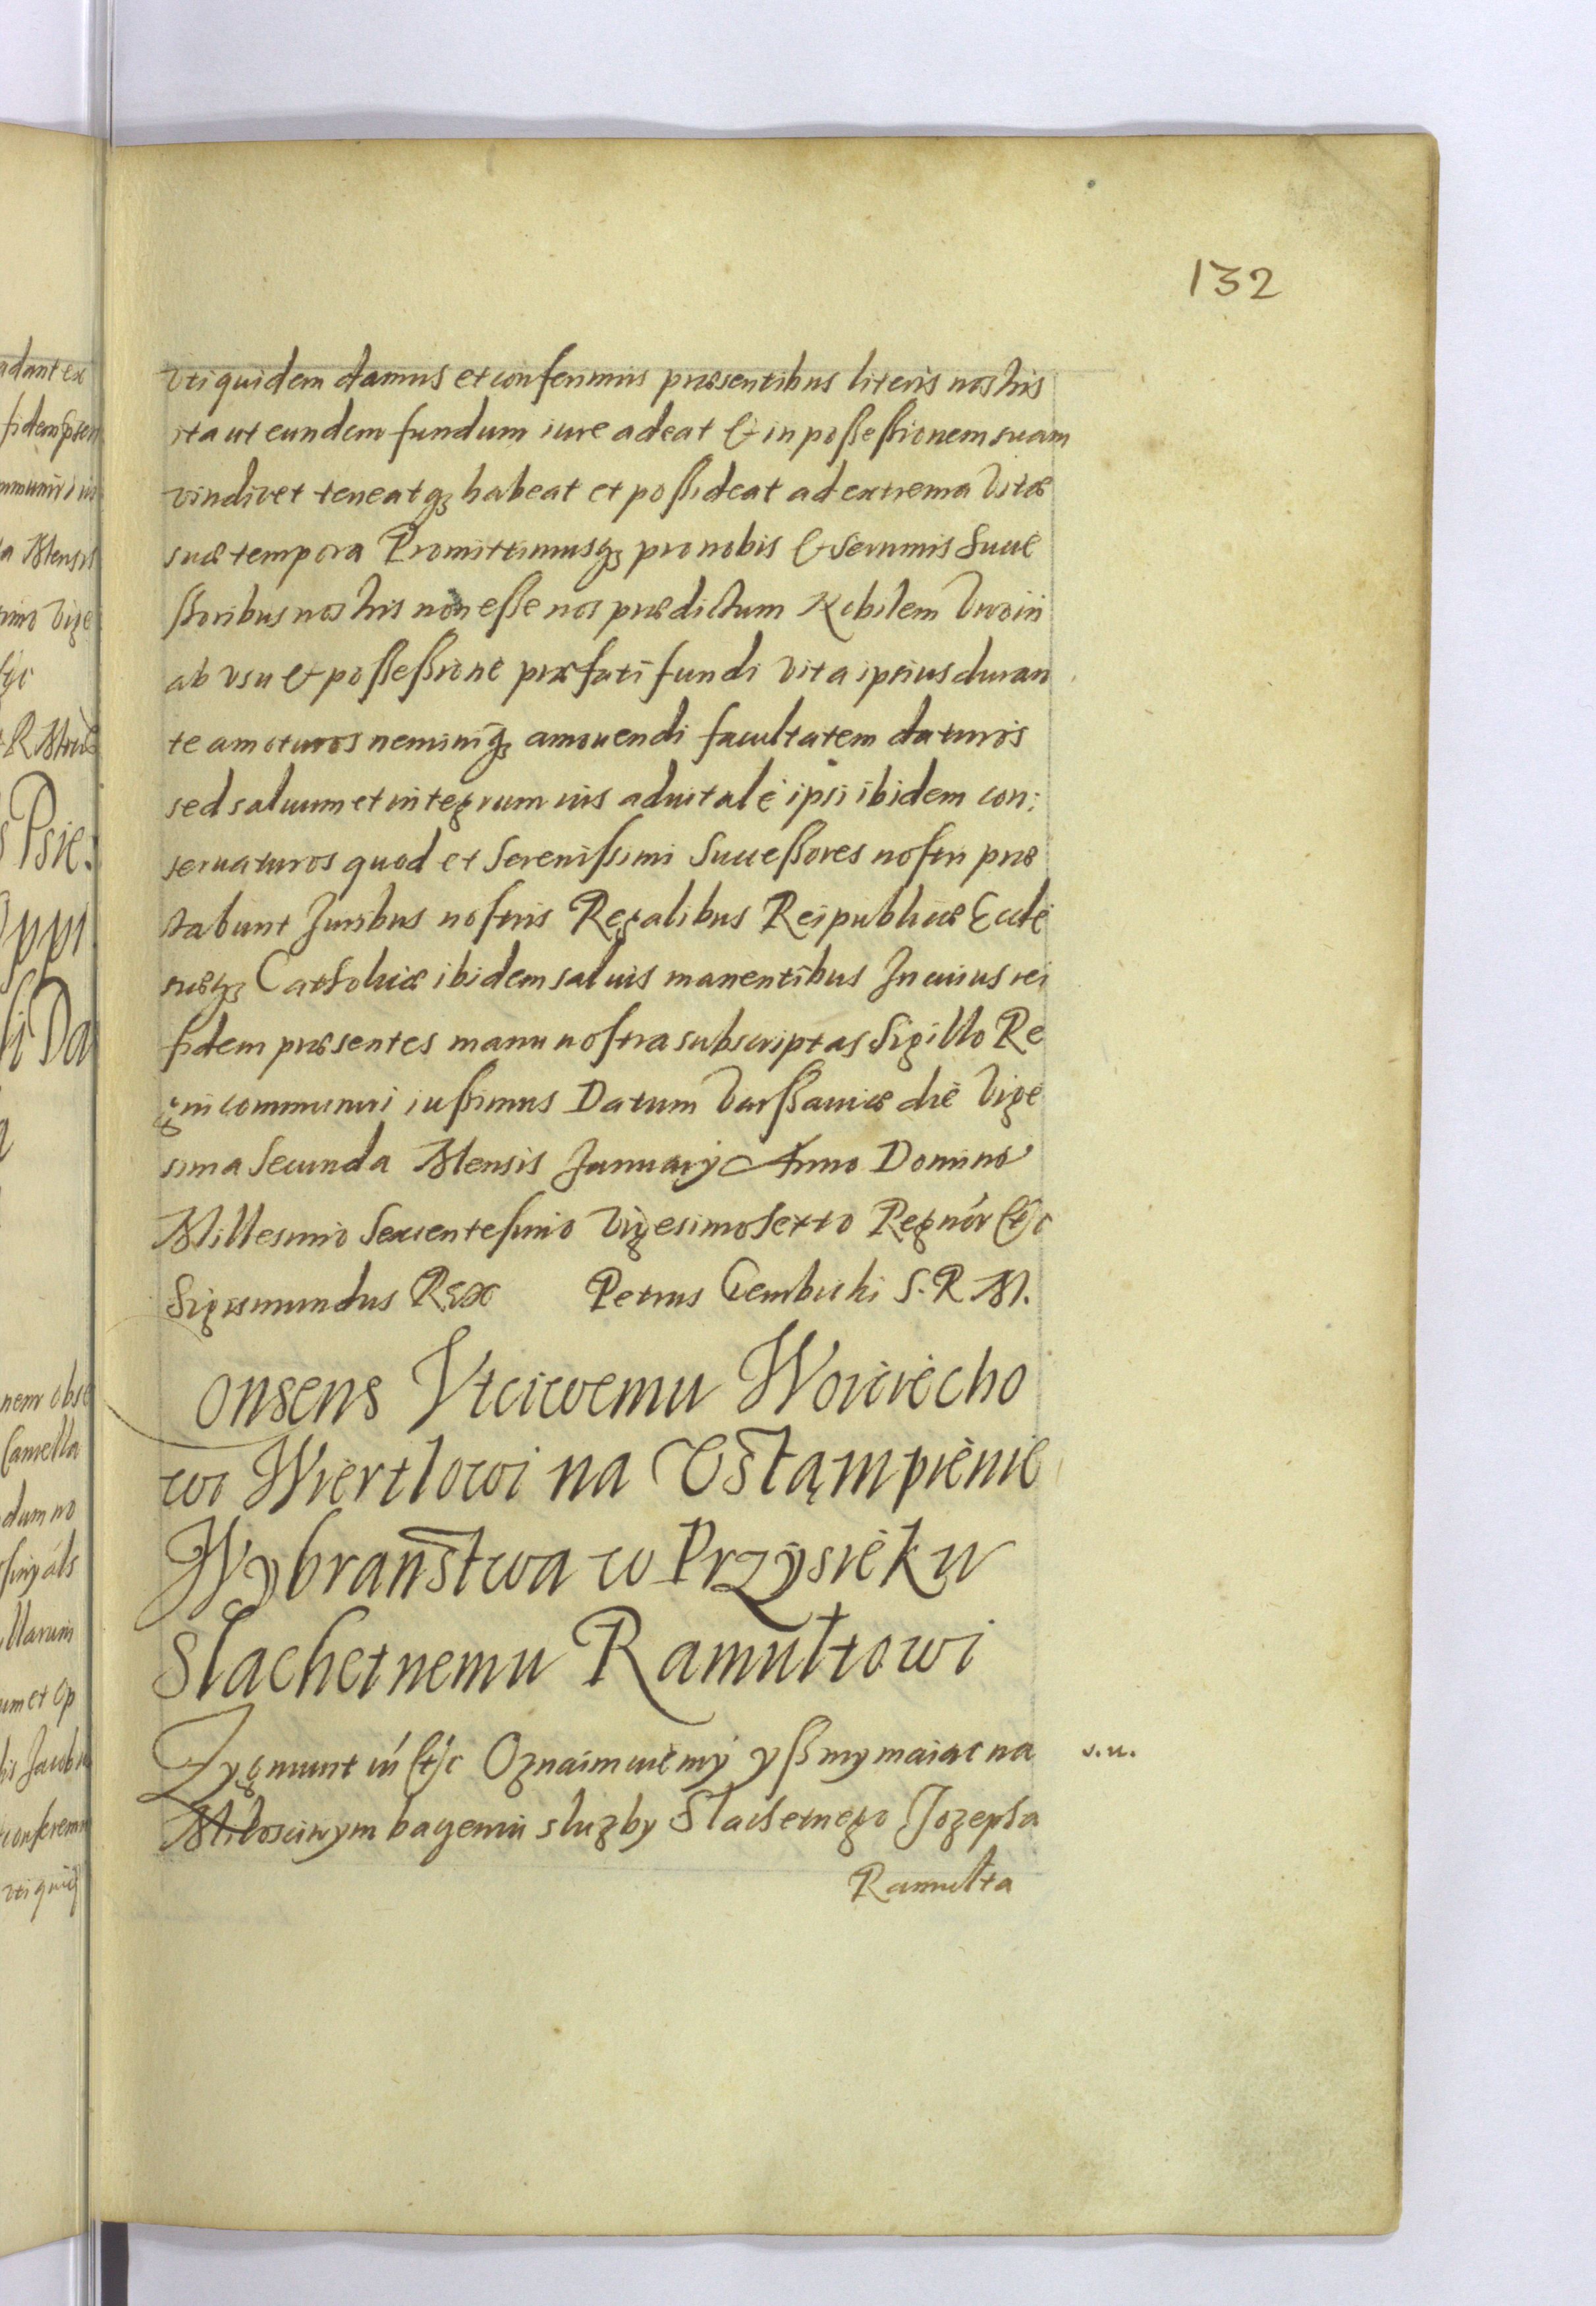 132
vti quidem damus et conferimus præsentibus literis nostris
ita ut eundem fundum iure adeat & in poßeßionem suam
vindicet teneatqꝫ habeat et poßideat ad extrema vitæ
suæ tempora Promittimusqꝫ pro nobis & Serenmis Succe
ßoribus nostris non eße nos prædictum Nobilem
ab usu & poßeßione præfati fundi vita ipsius duran
te amoturos neminiqꝫ amouendi facultatem daturos
sed saluum et integrum ius aduitale ipsi ibidem con:
seruaturos quod et Serenißimi Succeßores nostri præ
stabunt Juribus nostris Regalibus Reipublicæ Eccle
siæqꝫ Catholicæ ibidem saluis manentibus In cuius rei
fidem præsentes manu nostra subscriptas Sigillo Re
gni communiri iußimus Datum Varßauiæ die Vige
sima Secunda Mensis January Anno Domino
Millesimo Sexcentesimo Vigesimo Sexto Regnór &c
Sigismundus Rex Petrus Gembicki S. R. M.
onsens Vtciwemu Woiciecho
wi Wiertlowi na Vstąmpienie
Wybranstwa w Przysieku
Slachetnemu Ramułtowi
Zygmunt iii &c Oznaimuiemy yß my maiac na v. u.
Milosciwym baczeniu sluzby Slachetnego Jozepha
Ramułta